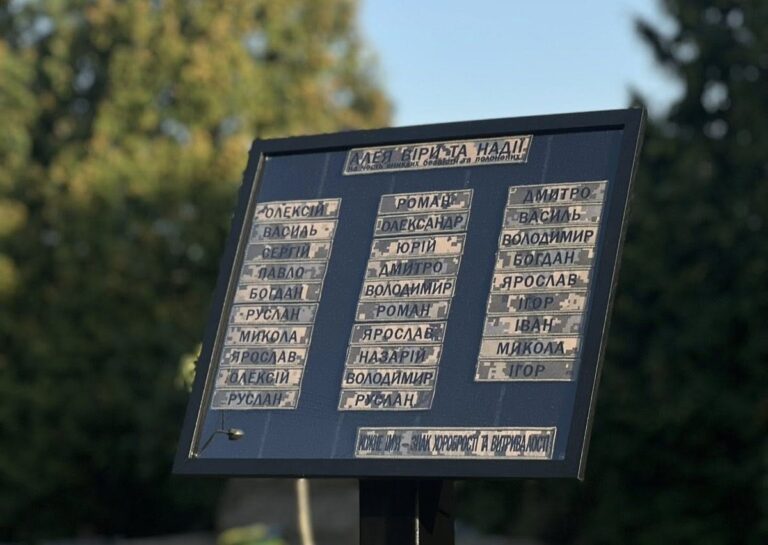 АЛЕЯ ВІРИ ТА НАДІЇ
на честь зниклих безвісти та полонених
ОЛЕКСІЙ
ВАСИЛЬ
СЕРГІЙ
ПАВЛО
БОГДАН
РУСЛАН
МИКОЛА
ЯРОСЛАВ
ОЛЕКСІЙ
РУСЛАН
РОМАН
ОЛЕКСАНДР
ЮРІЙ
ДМИТРО
ВОЛОДИМИР
РОМАН
ЯРОСЛАВ
НАЗАРІЙ
ВОЛОДИМИР
РУСЛАН
ДМИТРО
ВАСИЛЬ
ВОЛОДИМИР
БОГДАН
ЯРОСЛАВ
ІГОР
ІВАН
МИКОЛА
ІГОР
КОЖНЕ ІМ'Я – ЗНАК ХОРОБРОСТІ ТА ВИТРИВАЛОСТІ